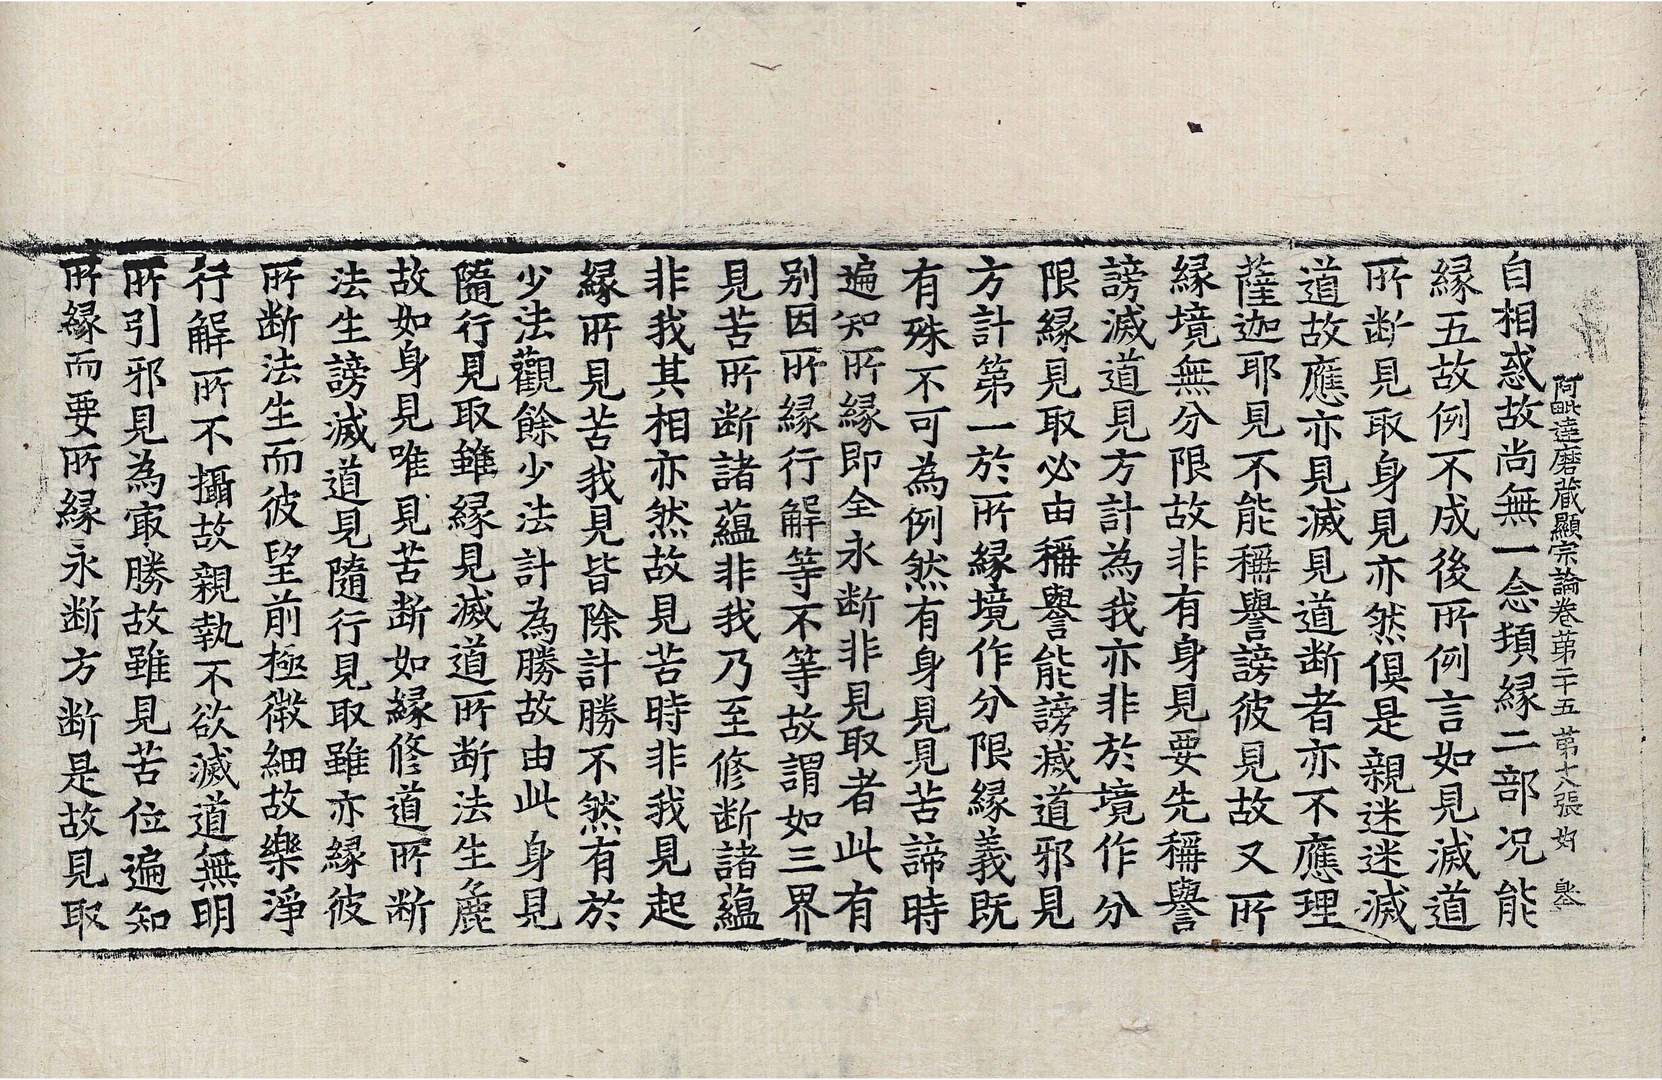 阿毗達磨藏顯宗論卷第二十五 第十八張
自相惑故尚無一念頓緣二部況能
緣五故例不成後所例言如見滅道
所斷見取身見亦然俱是親迷迷滅
道故應亦見滅見道斷者亦不應理
薩迦耶見不能稱譽謗彼見故又所
緣境無分限故非有身見要先稱譽
謗滅道見方計為我亦非於境作分
限緣見取必由稱譽能謗滅道邪見
方計第一於所緣境作分限緣義既
有殊不可為例然有身見見苦諦時
遍知所緣即全永斷非見取者此有
別因所緣行解等不等故謂如三界
見苦所斷諸蘊非我乃至修斷諸蘊
非我其相亦然故見苦時非我見起
緣所見苦我見皆除計勝不然有於
少法觀餘少法計為勝故由此身見
隨行見取雖緣見滅道所斷法生麁
故如身見唯見苦斷如緣修道所斷
法生謗滅道見隨行見取雖亦緣彼
所斷法生而彼望前極微細故樂淨
行解所不攝故親執不欲滅道無明
所引邪見為㝡勝故雖見苦位遍知
所緣而要所緣永斷方斷是故見取